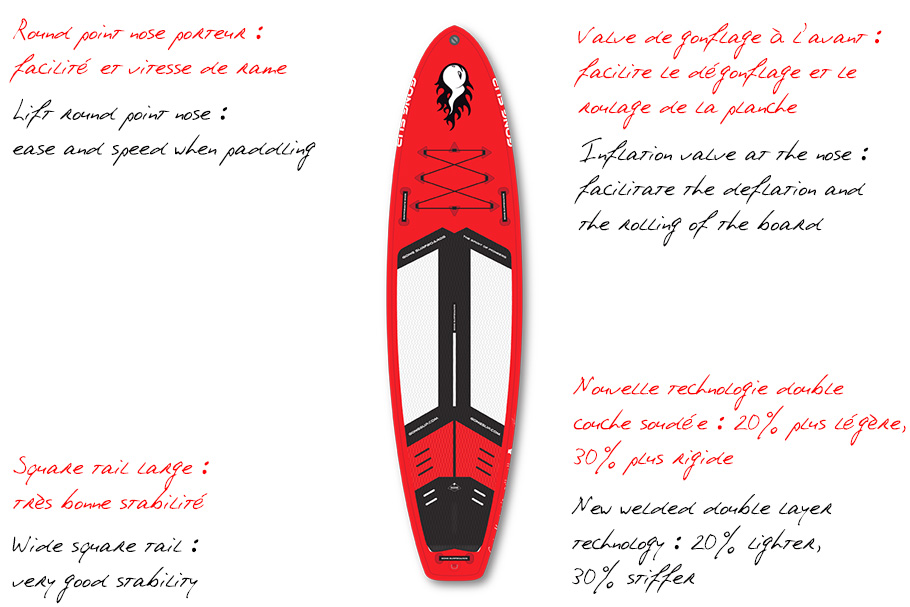 Round point nose porteur :
facilité et vitesse de rame
Lift round point nose :
ease and speed when paddling
Valve de gonflage à l'avant :
facilite le dégonflage et le
roulage de la planche
Inflation valve at the nose :
facilitate the deflation and
the rolling of the board
GONG SUP
GONG SUP
GONG SURFBOARDS
THE SPIRIT OF PIONEERS
GONGSUP.COM
GONGSUP.COM
Nouvelle technologie double
couche soudée : 20% plus légère,
30% plus rigide
New welded double layer
technology : 20% lighter,
30% stiffer
Square tail large :
très bonne stabilité
Wide square tail :
very good stability